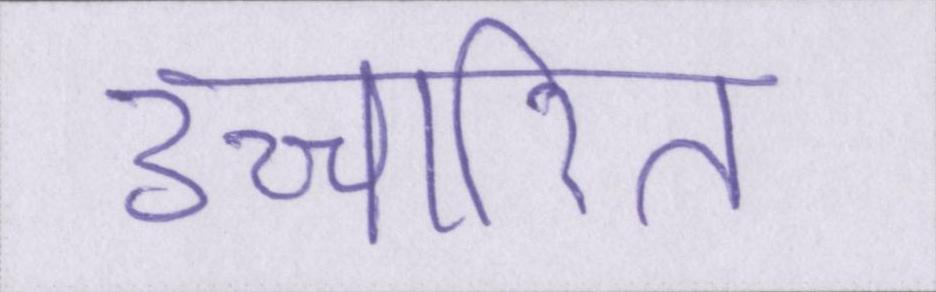 उच्चारित